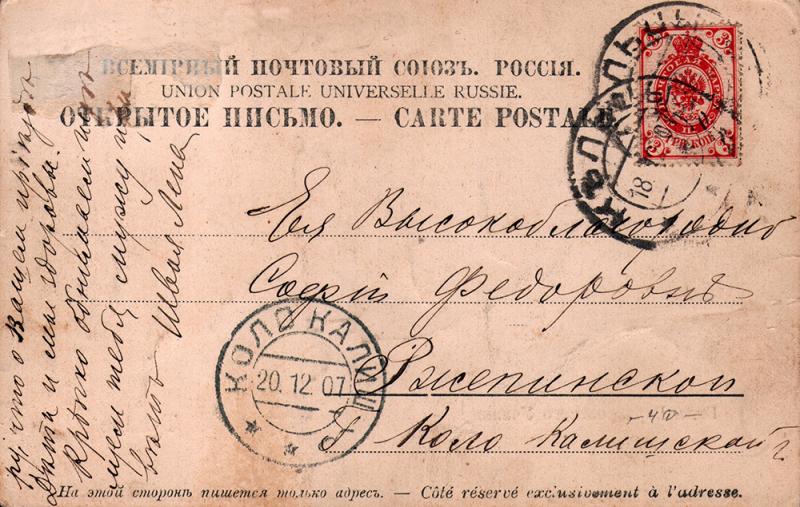 ВСЕМІРНЫЙ ПОЧТОВЫЙ СОЮЗЪ. РОССІЯ.
UNION POSTALE UNIVERSELLE RUSSIE.
ОТКРЫТОЕ ПИСЬМО. — CARTE POSTALE
Ея Высокоблагородію
Софіи Федоровнѣ
Ржепинской
Г. Коло Калишской г
КОЛО КАЛИШ
20.12.07
КѢЛЬЦЫ
18
что о вашем пріѣздѣ
Дѣти и мы здоровы.
Крѣпко обнимаем
тебя мужу
Твоя Лена
На этой сторонѣ пишется только адресъ. — Côté réservé exclusivement à l'adresse.